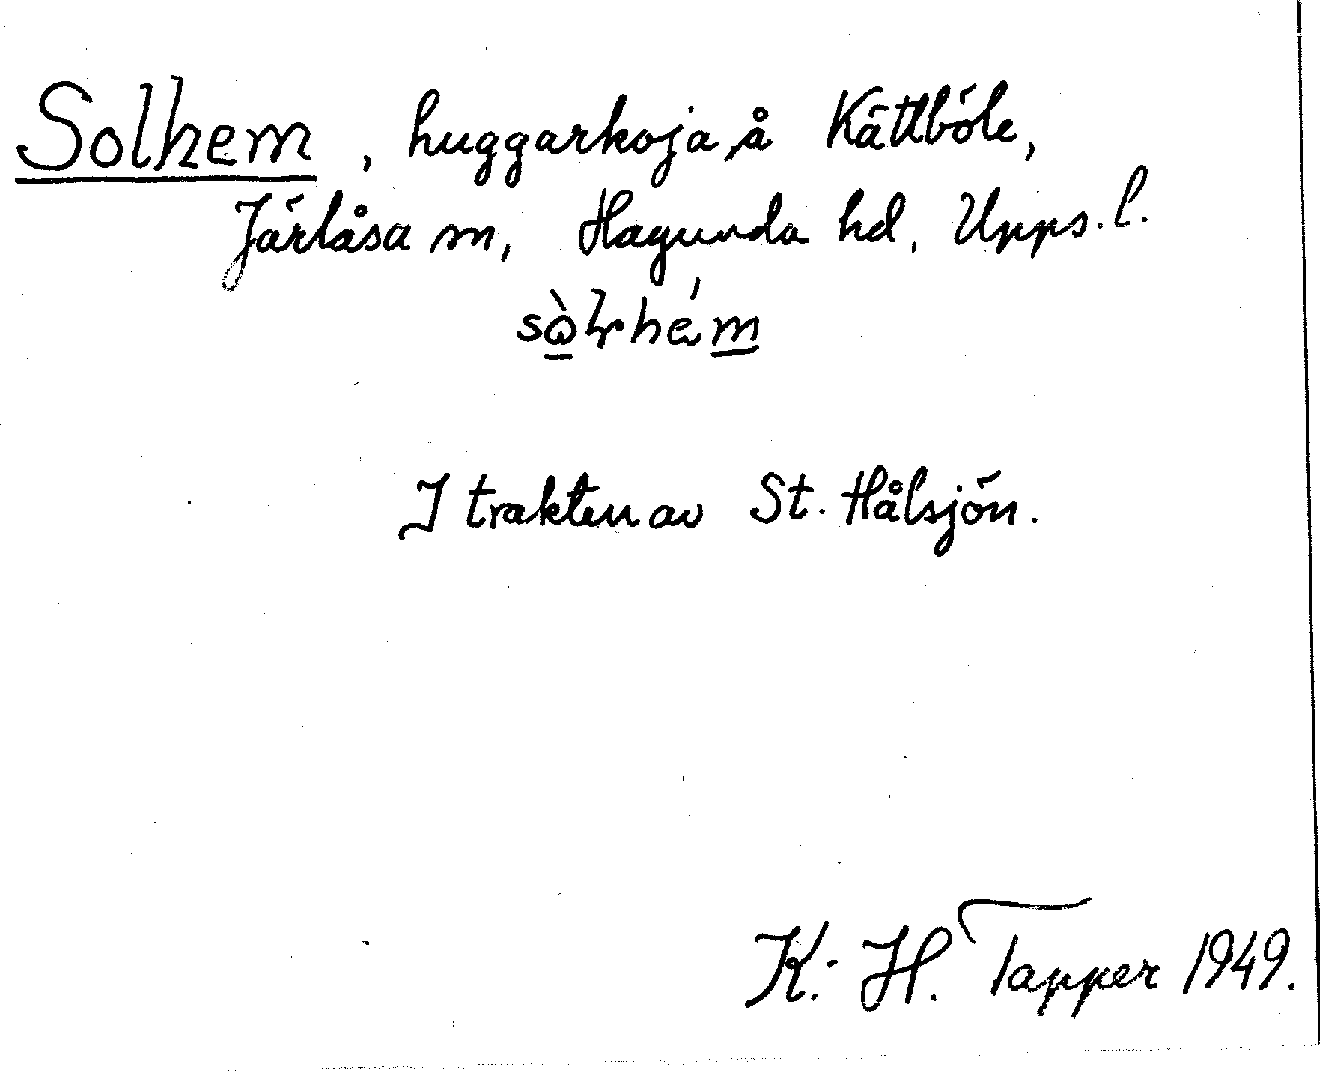 Solhem, huggarkoja å Kättböle,
Järlåsa sn, Hagunda hd, Upps. l.
I trakten av St. Hålsjön.
K.-H. Tapper 1949.